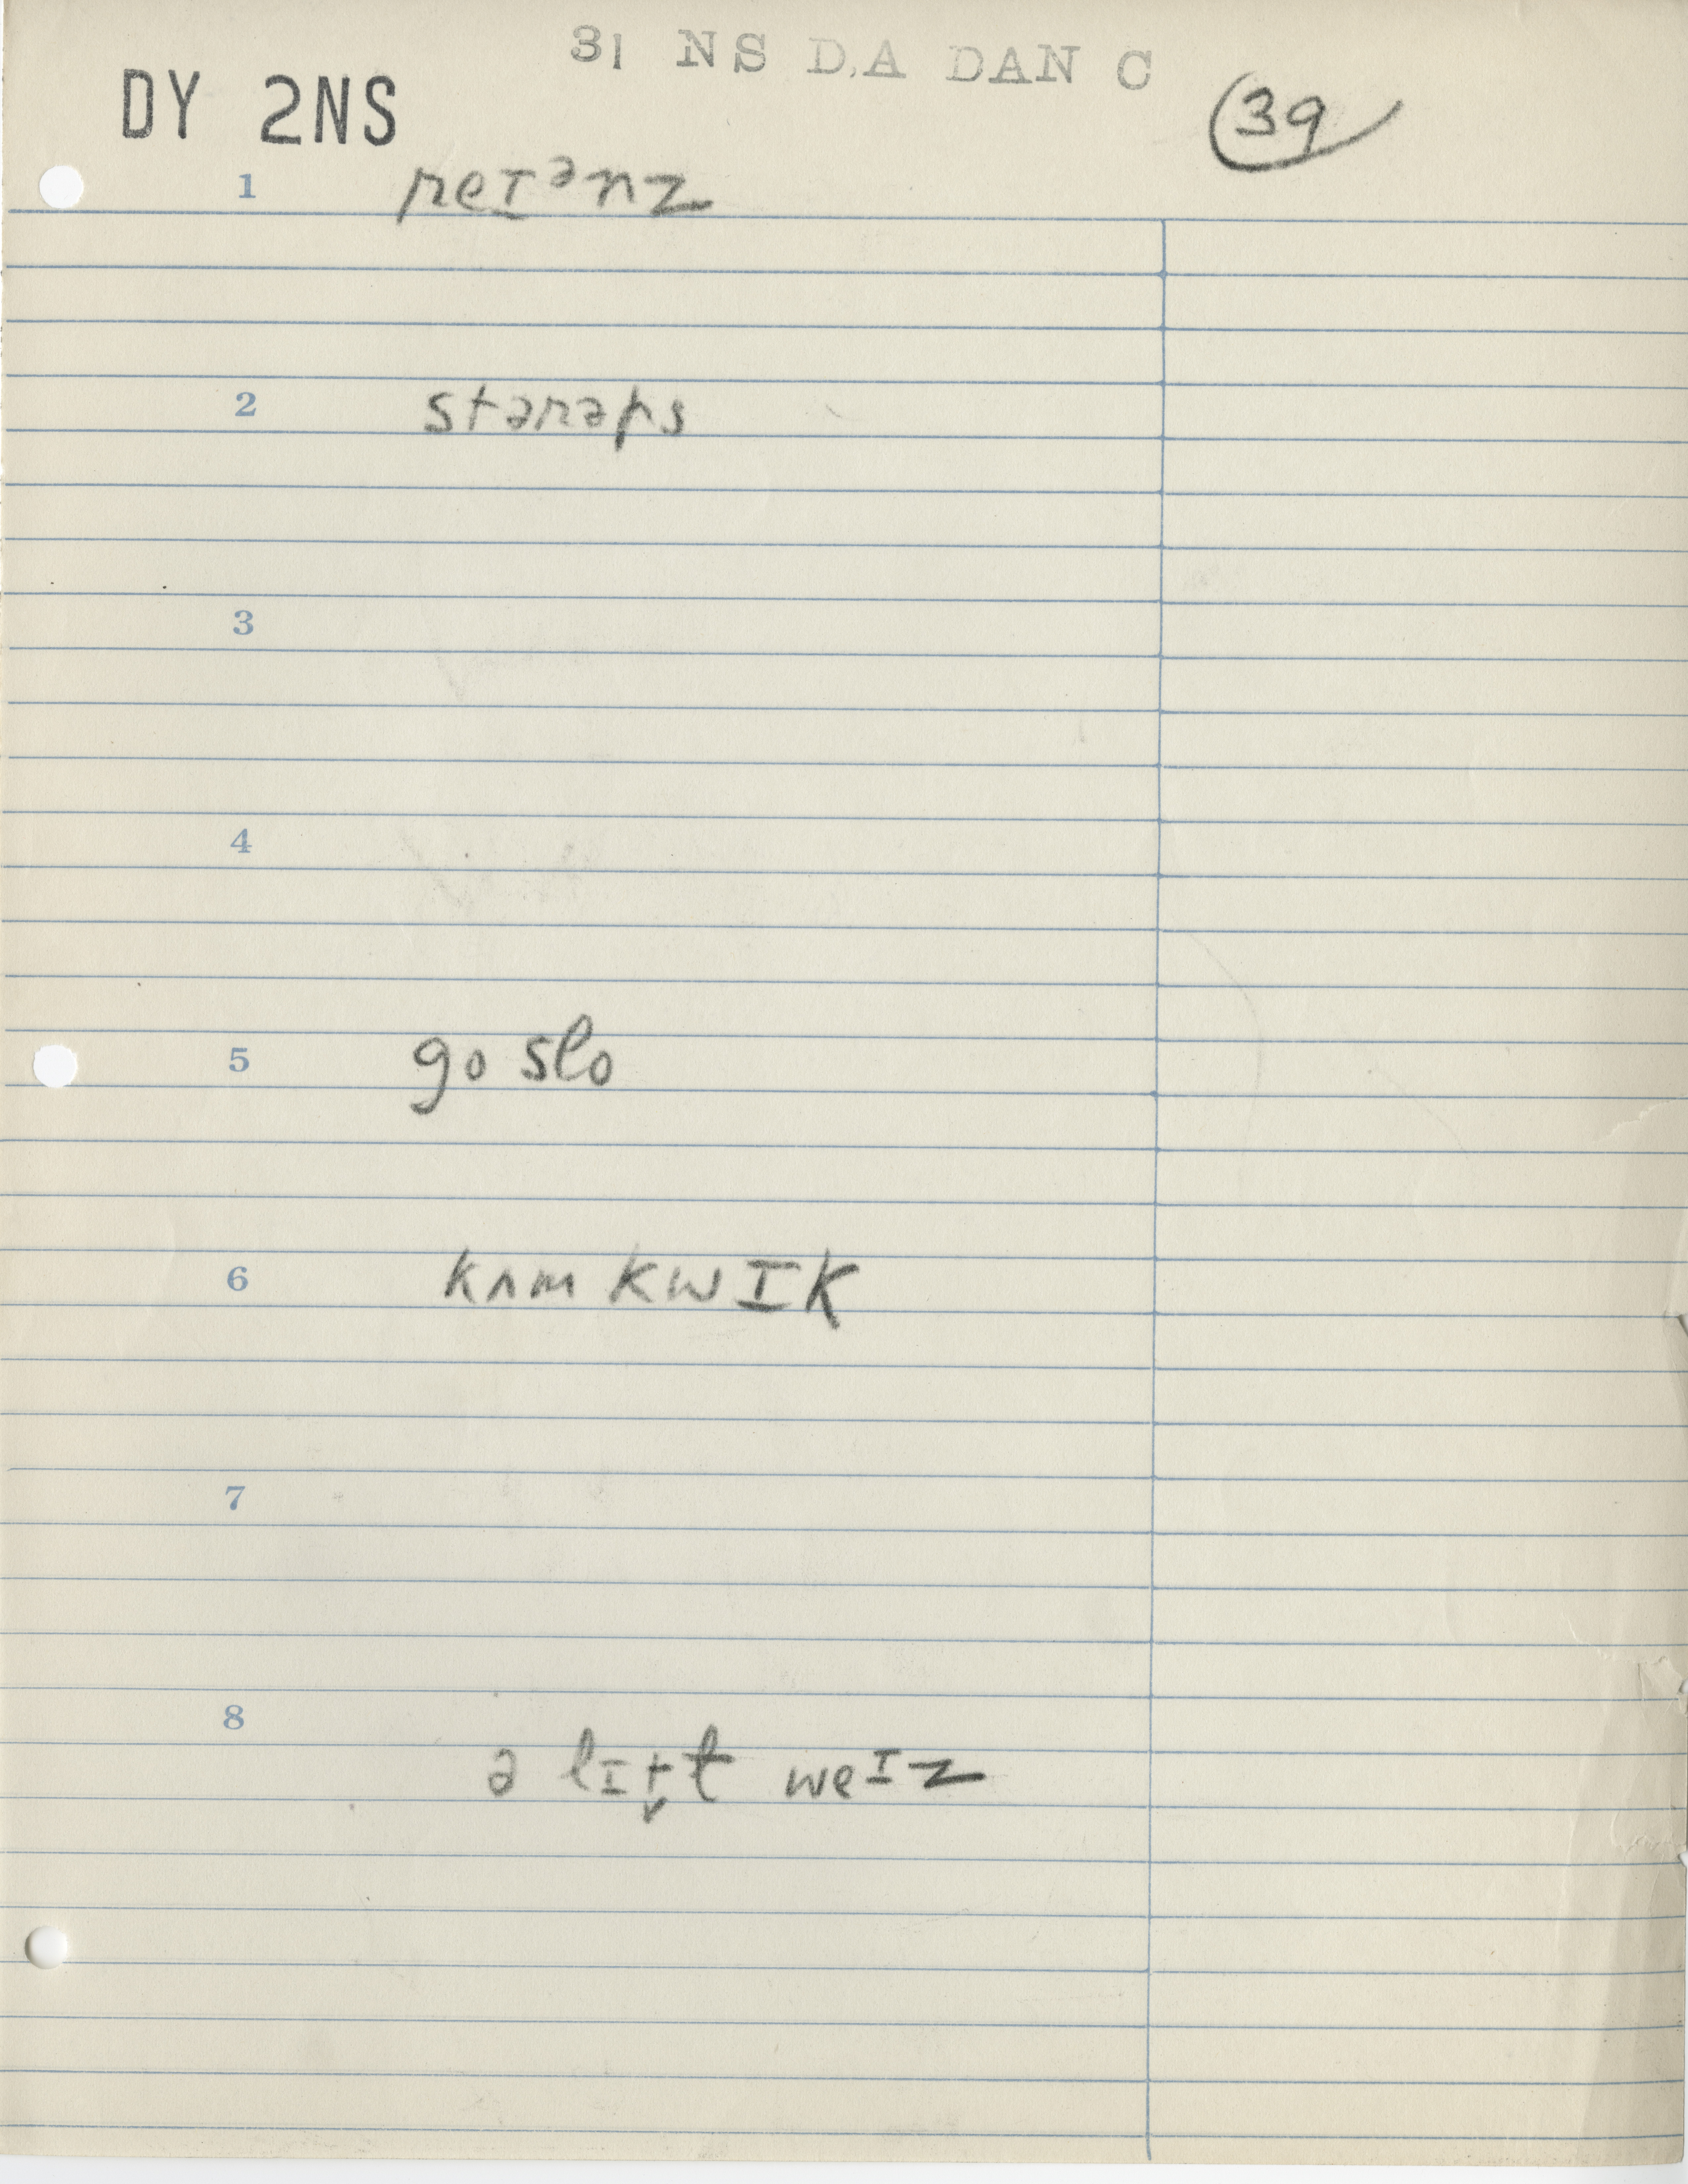 31 NS D.A DAN C
DY 2NS
39
1 reɪᵊnz
2 stərəps
3
4
5 go slo
6 kʌm kwɪk
7
8 ə lɪt̬t weɪz